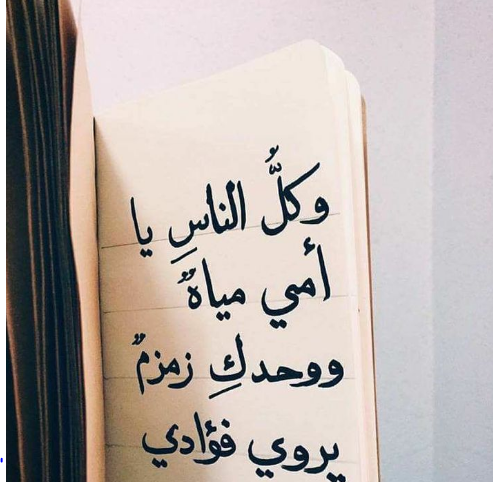 وكلُّ الناسِ يا
أمي مياهٌ
ووحدكِ زمزمٌ
يروي فؤادي